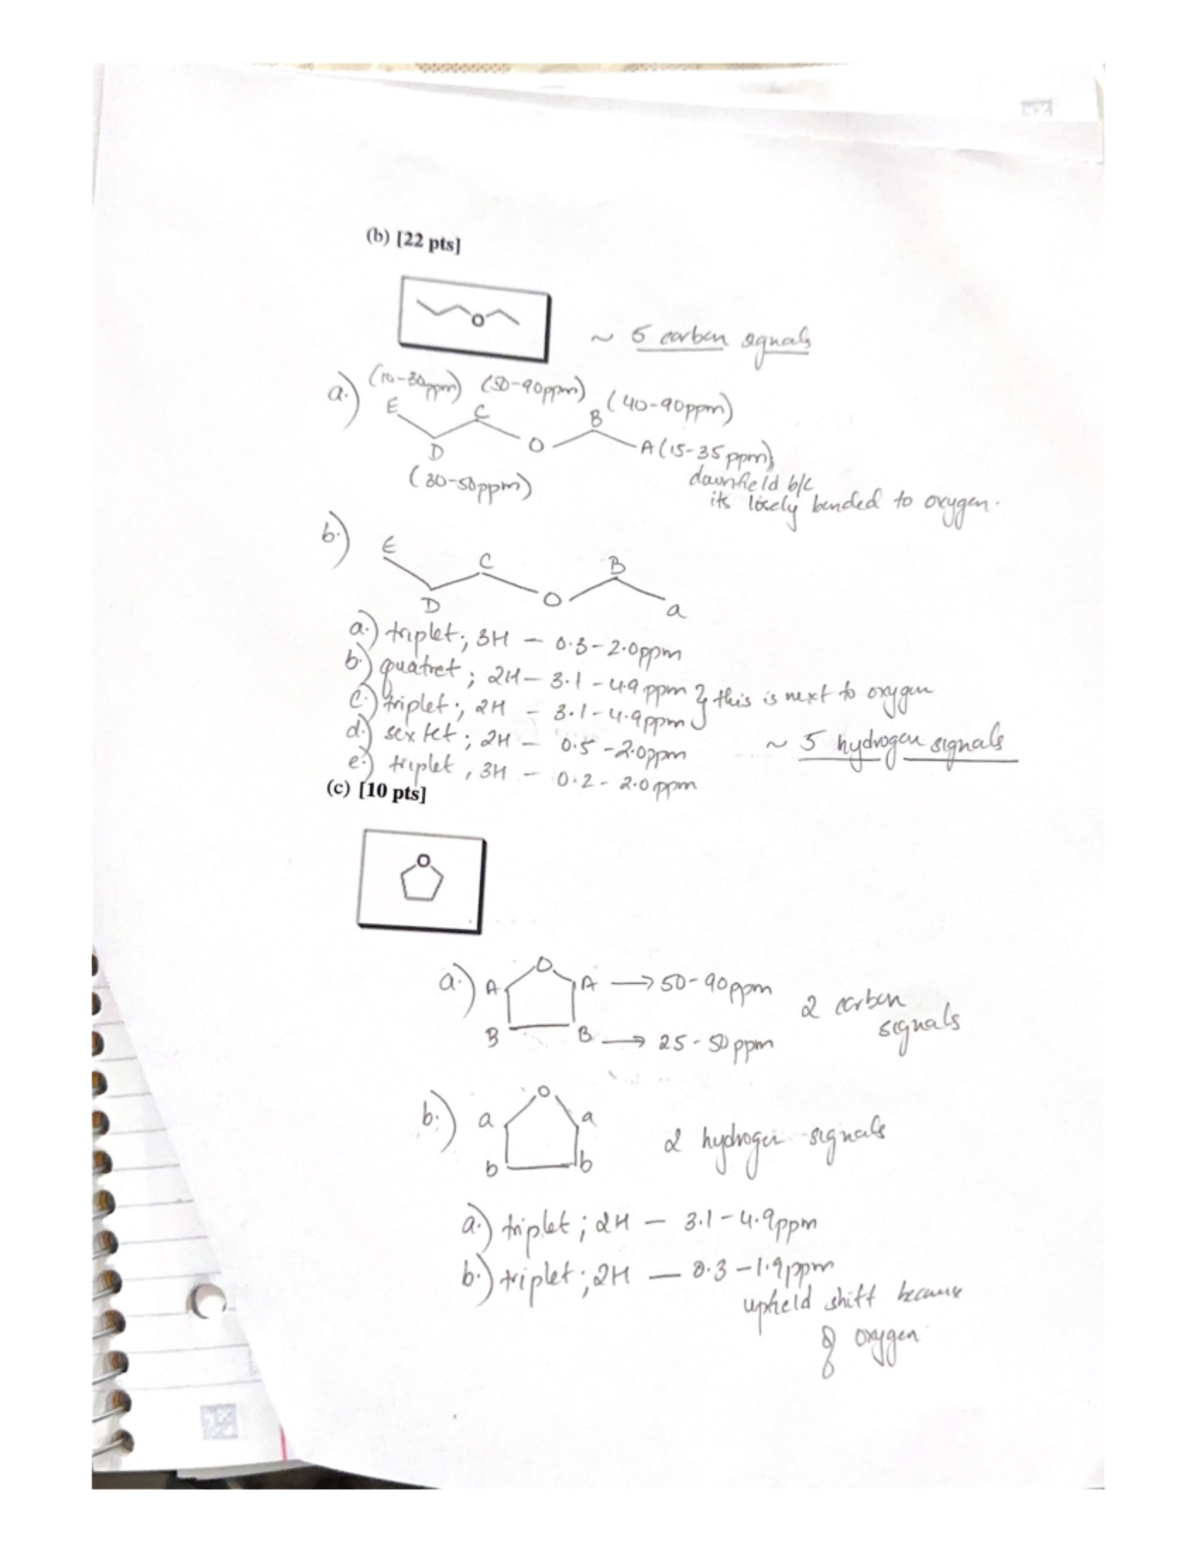 (b) [22 pts]
O
~ 5 carbon signals
a.) (10-30ppm) (50-90ppm) (40-90ppm)
E C B
D O A (15-35ppm)
(30-50ppm) downfield b/c
its bonded to oxygen.
b.) E C B
D O a
a.) triplet; 3H - 0.3-2.0ppm
b.) quatret; 2H - 3.1-4.9ppm } this is next to oxygen
c.) triplet; 2H - 3.1-4.9ppm
d.) sextet; 2H - 0.5-2.0ppm ~ 5 hydrogen signals
e.) triplet, 3H - 0.2-2.0ppm
(c) [10 pts]
O
a.) A O A → 50-90ppm 2 carbon
B B → 25-50ppm signals
b.) a O a
b b 2 hydrogen signals
a.) triplet; 2H - 3.1-4.9ppm
b.) triplet; 2H - 0.3-1.9ppm
upfield shift because
of oxygen